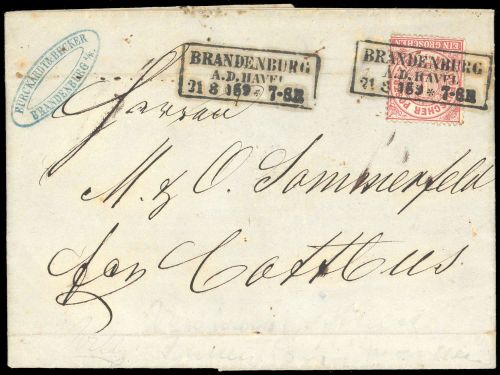 BURCKARDT & BECKER
BRANDENBURG a/H.
BRANDENBURG
A.D. HAVEL
21 8 69 * 7-8 N
BRANDENBURG
A.D. HAVEL
21 8 69 * 7-8 N
EIN GROSCHEN
Herren
M. & O. Sommerfeld
Cottbus